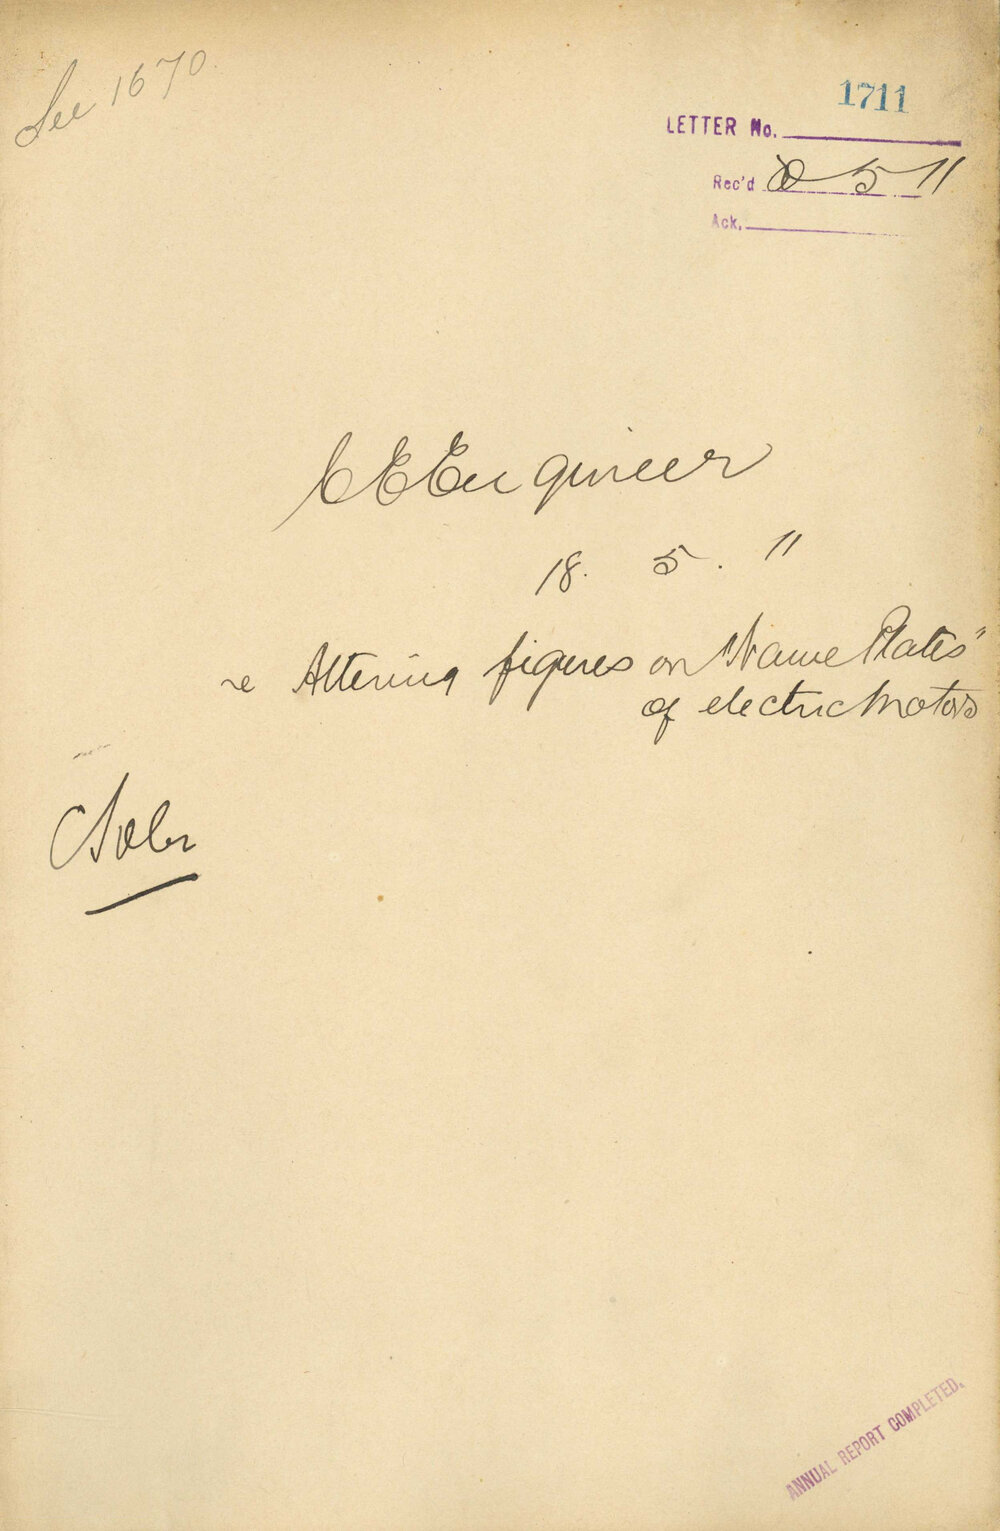 See 1670.
1711
LETTER No.
Rec'd 5 11
Ack.
CEEngineer
18. 5. 11
re Altering figures on "Name Plates"
of electric Motors
ANNUAL REPORT COMPLETED.